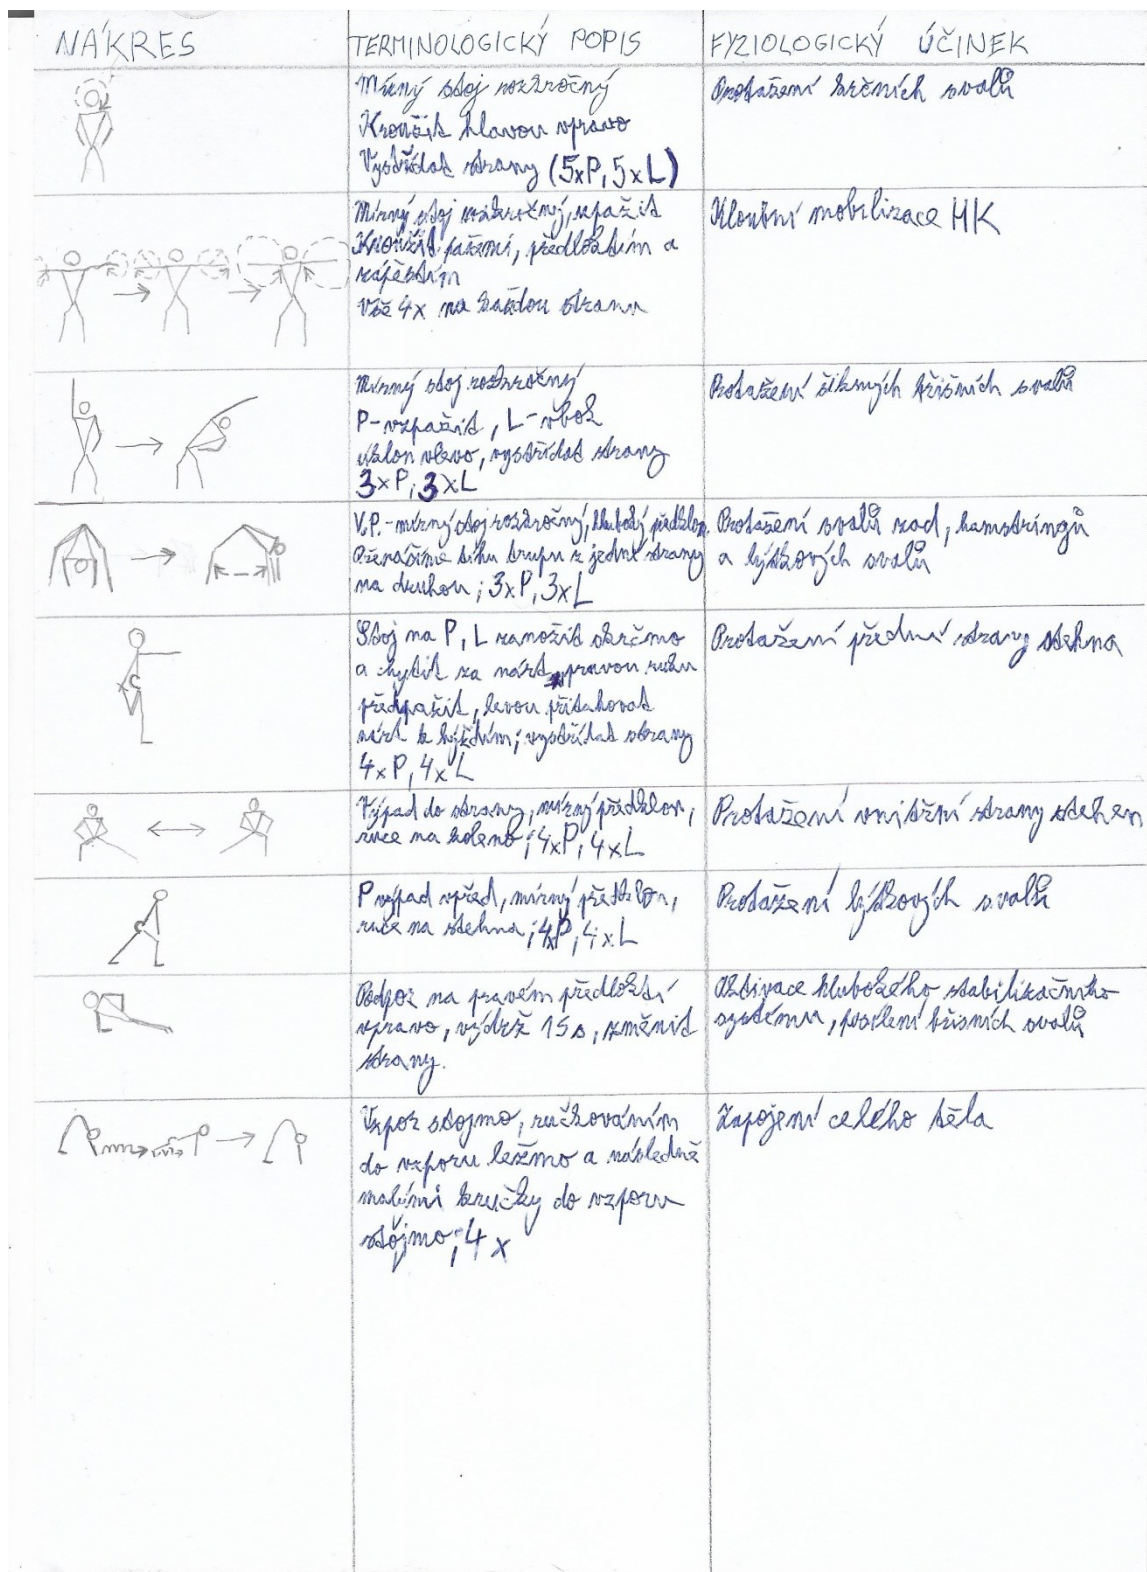 NÁKRES
TERMINOLOGICKÝ POPIS
FYZIOLOGICKÝ ÚČINEK
Mírný stoj rozkročný
Kroužit hlavou vpravo
Vystřídat strany (5xP, 5xL)
Protažení krčních svalů
Mírný stoj rozkročný, upažit
Kroužit pažemi, předloktím a
zápěstím
Vše 4x na každou stranu
Kloubní mobilizace HK
Mírný stoj rozkročný
P-vzpažit, L-vbok
úklon vlevo, vystřídat strany
3xP, 3xL
Protažení šikmých břišních svalů
V.P.-mírný stoj rozkročný, hluboký předklon.
Přenášíme tíhu trupu z jedné strany
na druhou; 3xP, 3xL
Protažení svalů zad, hamstringů
a lýtkových svalů
Stoj na P, L zanožit skrčmo
a chytit za nárt, pravou ruku
předpažit, levou přitahovat
nárt k hýždím; vystřídat strany
4xP, 4xL
Protažení přední strany stehna
Výpad do strany, mírný předklon,
ruce na koleno; 4xP, 4xL
Protažení vnitřní strany stehen
P výpad vpřed, mírný předklon,
ruce na stehna; 4xP, 4xL
Protažení lýtkových svalů
Podpor na pravém předloktí
vpravo, výdrž 15s, změnit
strany.
Aktivace hlubokého stabilizačního
systému, posílení břišních svalů
Vzpor stojmo, ručkováním
do vzporu ležmo a následně
malými krůčky do vzporu
stojmo; 4x
Zapojení celého těla